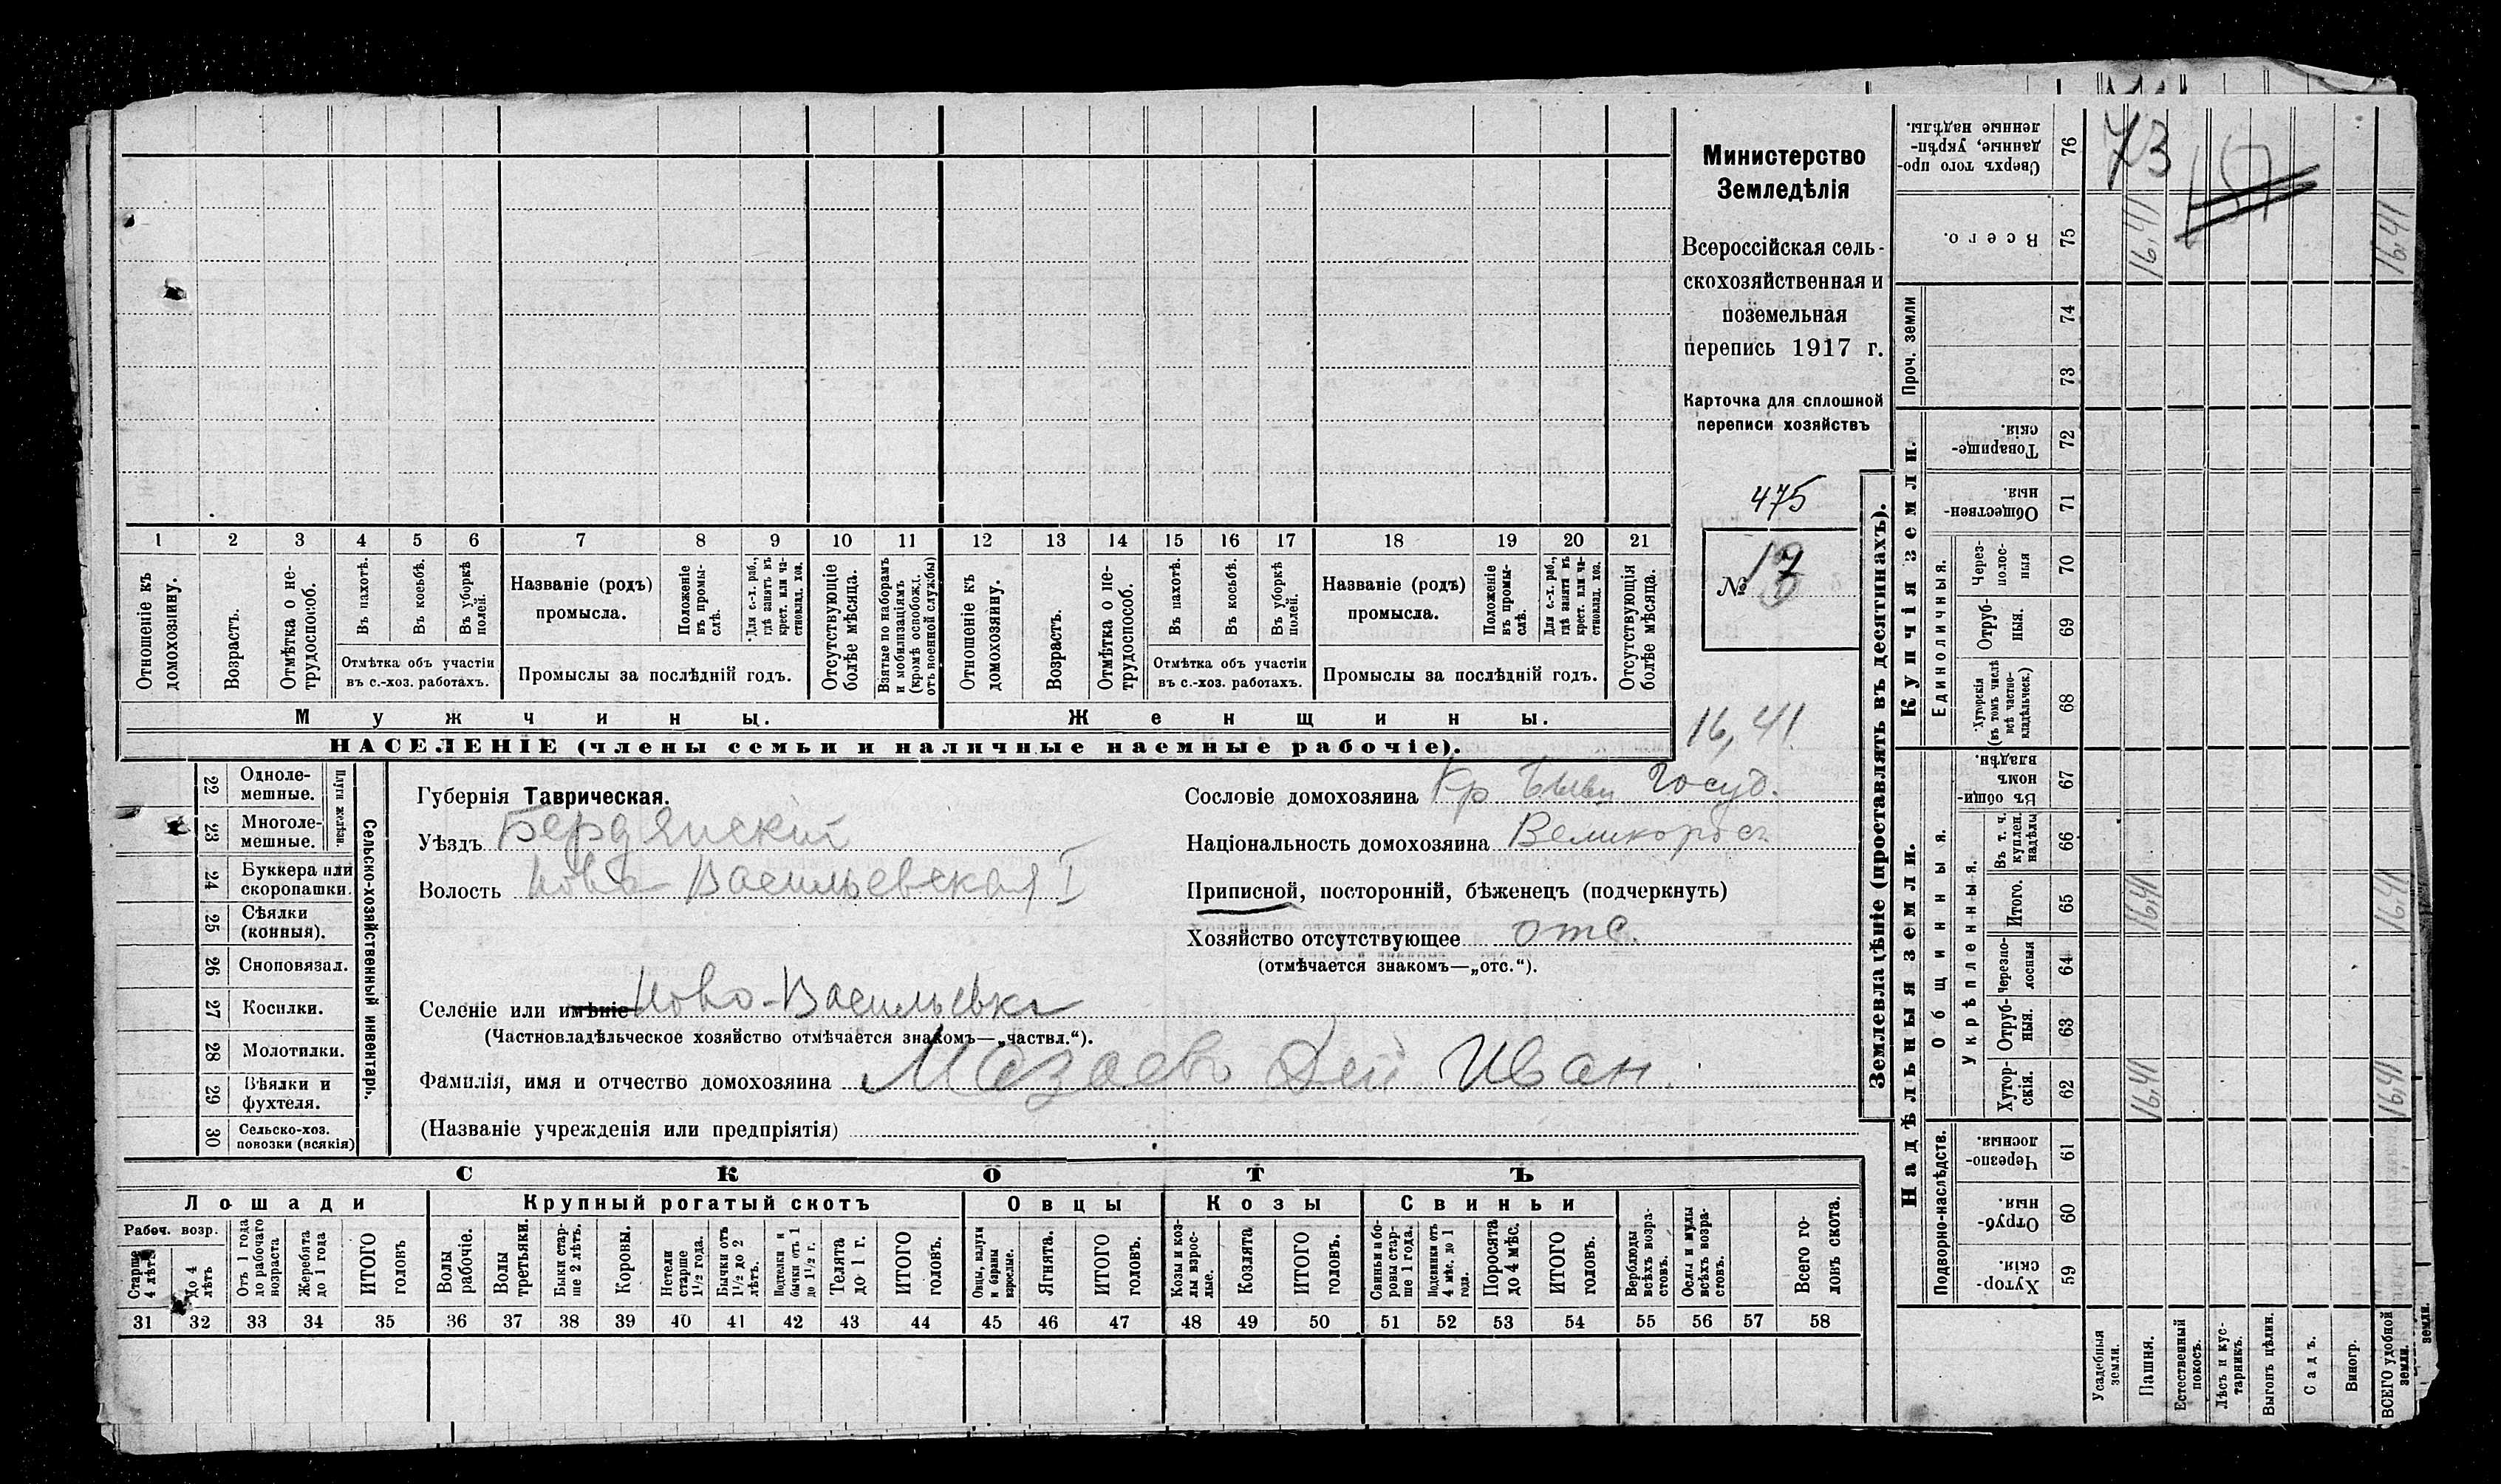 Министерство
Земледѣлія
Всероссійская сель-
скохозяйственная и
поземельная
перепись 1917 г.
Карточка для сплошной
переписи хозяйствъ
475
№
16,41
1 2 3 4 5 6 7 8 9 10 11 12 13 14 15 16 17 18 19 20 21
Отношеніе къ домохозяину.
Возрастъ.
Отмѣтка о не-трудоспособ.
Въ пахотѣ.
Въ косьбѣ.
Въ уборкѣ полей.
Отмѣтка объ участіи
въ с.-хоз. работахъ.
Названіе (родъ)
промысла.
Положеніе въ промы-слѣ.
Для с.-х. раб., гдѣ занятъ въ крест. или ча-стновлад. хоз.
Промыслы за послѣдній годъ.
Отсутствующіе болѣе мѣсяца.
Взятые по наборамъ и мобилизаціямъ (кромѣ освобожд. отъ военной службы)
Отношеніе къ домохозяину.
Возрастъ.
Отмѣтка о не-трудоспособ.
Въ пахотѣ.
Въ косьбѣ.
Въ уборкѣ полей.
Отмѣтка объ участіи
въ с.-хоз. работахъ.
Названіе (родъ)
промысла.
Положеніе въ промы-слѣ.
Для с.-х. раб., гдѣ заняты въ крест. или ча-стновлад. хоз.
Промыслы за послѣдній годъ.
Отсутствующія болѣе мѣсяца.
Мужчины.
Женщины.
НАСЕЛЕНІЕ (члены семьи и наличные наемные рабочіе).
22 Одноле-мешные.
23 Многоле-мешные.
Плуги желѣзн.
24 Буккера или скоропашки.
25 Сѣялки (конныя).
26 Сноповязал.
27 Косилки.
28 Молотилки.
29 Вѣялки и фухтеля.
30 Сельско-хоз. повозки (всякія)
Сельско-хозяйственный инвентарь.
Губернія Таврическая.
Уѣздъ Бердянский
Волость Ново Васильевская I
Селеніе или имѣніе Ново-Васильевка
(Частновладѣльческое хозяйство отмѣчается знакомъ—„частвл.“).
Фамилія, имя и отчество домохозяина Мазаевъ Иван
(Названіе учрежденія или предпріятія)
Сословіе домохозяина Кр бывш госуд.
Національность домохозяина Великоросъ
Приписной, посторонній, бѣженецъ (подчеркнуть)
Хозяйство отсутствующее отс.
(отмѣчается знакомъ—„отс.“).
СКОТЪ
Лошади
Крупный рогатый скотъ
Овцы
Козы
Свиньи
Рабоч. возр.
Старше 4 лѣтъ
до 4 лѣтъ
Отъ 1 года до рабочаго возраста
Жеребята до 1 года
ИТОГО головъ
Волы рабочіе.
Волы третьяки.
Быки стар-ше 2 лѣтъ.
Коровы.
Нетели старше 1½ года.
Бычки отъ 1½ до 2 лѣтъ.
Подтелки и бычки отъ 1 до 1½ г.
Телята до 1 г.
ИТОГО головъ.
Овцы, валухи и бараны взрослые.
Ягнята.
ИТОГО головъ.
Козы и коз-лы взрос-лые.
Козлята
ИТОГО головъ.
Свиньи и бо-ровы стар-ше 1 года.
Подсвинки отъ 4 мѣс. до 1 года.
Поросята до 4 мѣс.
ИТОГО головъ.
Верблюды всѣхъ возра-стовъ.
Ослы и мулы всѣхъ возра-стовъ.
Всего го-ловъ скота.
31 32 33 34 35 36 37 38 39 40 41 42 43 44 45 46 47 48 49 50 51 52 53 54 55 56 57 58
Землевладѣніе (проставлять въ десятинахъ).
Купчія земли.
Надѣльныя земли.
Сверхъ того про-данные, укрѣп-ленные надѣлы. 76
Всего. 75
Проч. земли
74
73
Товарище-скія. 72
Обществен-ныя. 71
Единоличныя.
Через-полос-ныя 70
Отруб-ныя. 69
Хуторскія (въ томъ числѣ всѣ частно-владѣльческ.) 68
Общинныя.
Въ общи-номъ владѣн. 67
Укрѣпленныя.
Въ т. ч. куплен. надѣлы 66
Итого. 65
Черезпо-лосныя 64
Отруб-ныя. 63
Хутор-скія. 62
Подворно-наслѣдств.
Черезпо-лосныя. 61
Отруб-ныя. 60
Хутор-скія. 59
73
16,41 16,41
16,41 16,41
16,41 16,41
Усадебныя земли.
Пашня.
Естественный покосъ.
Лѣсъ и кус-тарникъ.
Выгонъ цѣлин.
Садъ.
Виногр.
ВСЕГО удобной земли.
земли.